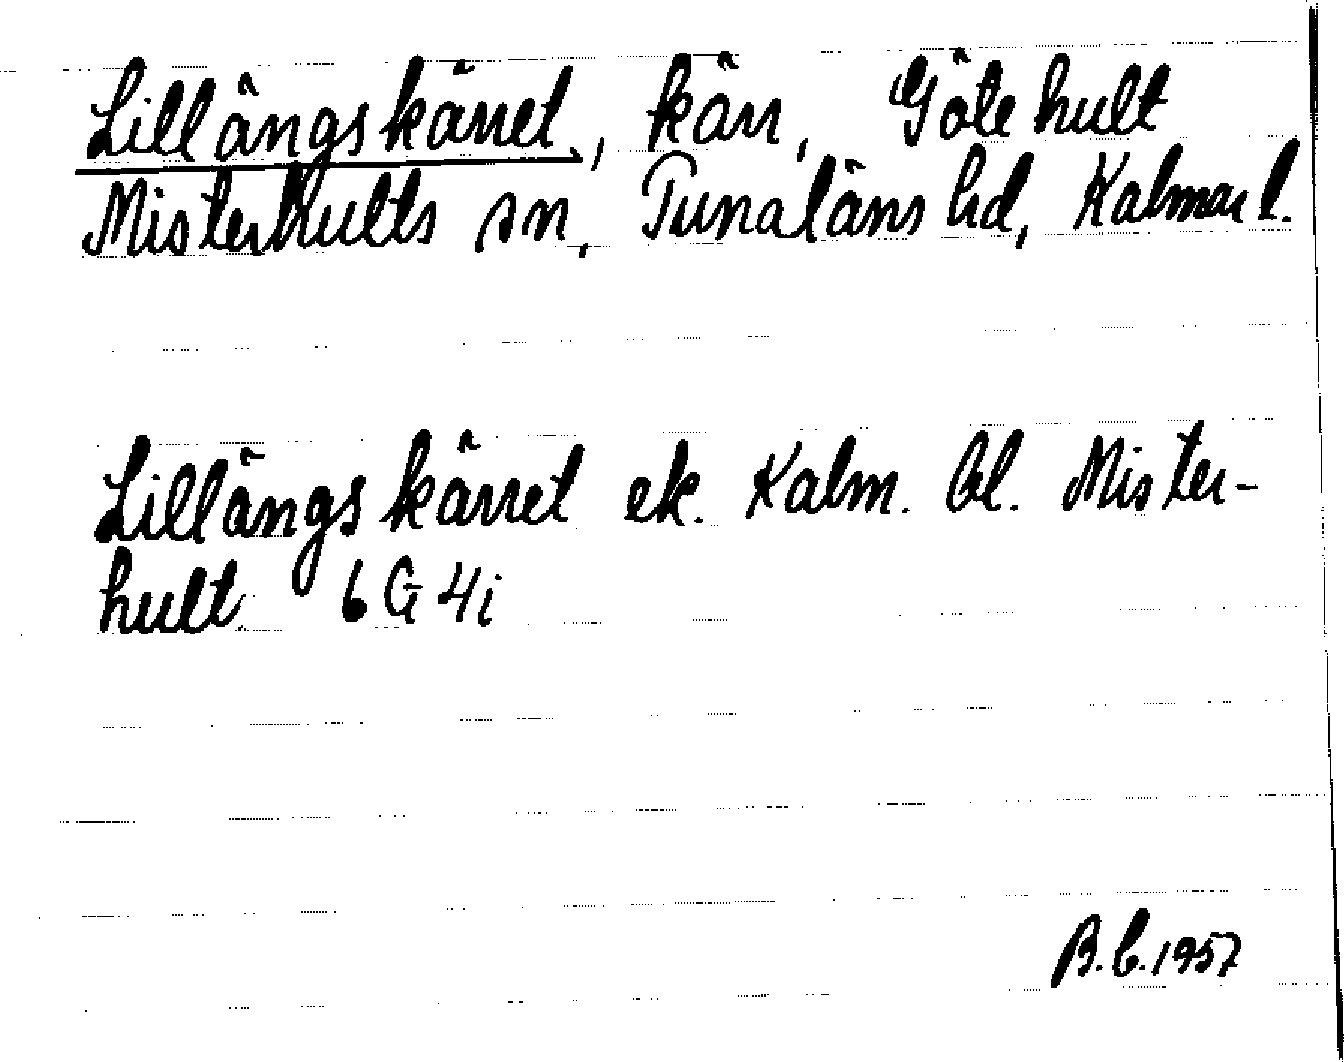 Lillängskärret, kärr, Götehult
Misterhults sn, Tunaläns hd, Kalmar l.
Lillängskärret ek. Kalm. bl. Mister-
hult 6G 4i
B.C.1957